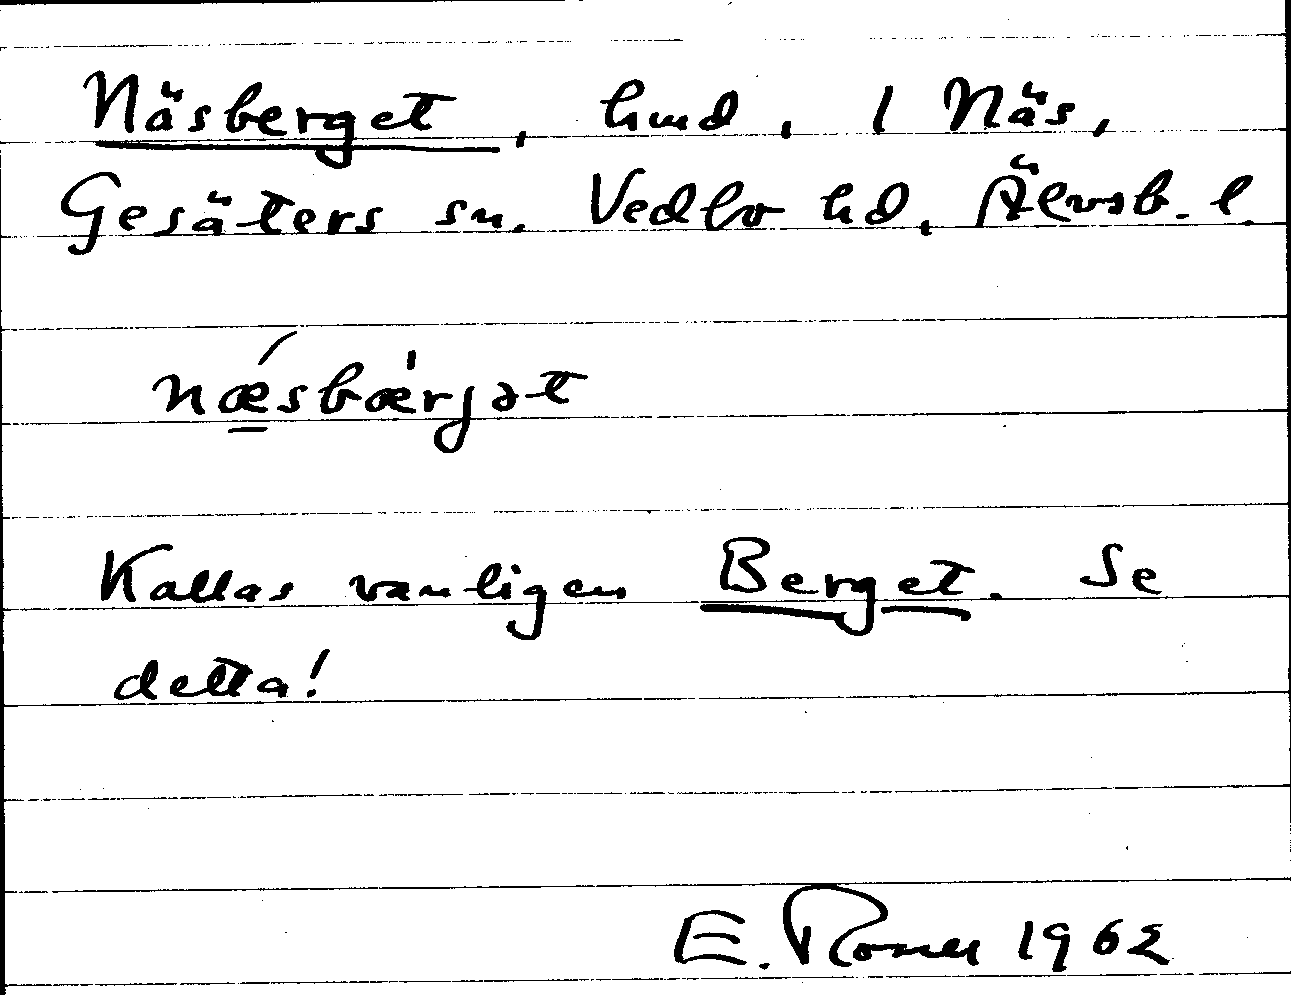 Näsberget, hmd, 1 Näs,
Gesäters sn. Vedbo hd, Älvsb. l.
nǽ̲sbæ̍rjət
Kallas vanligen Berget. Se
detta!
E. 1962